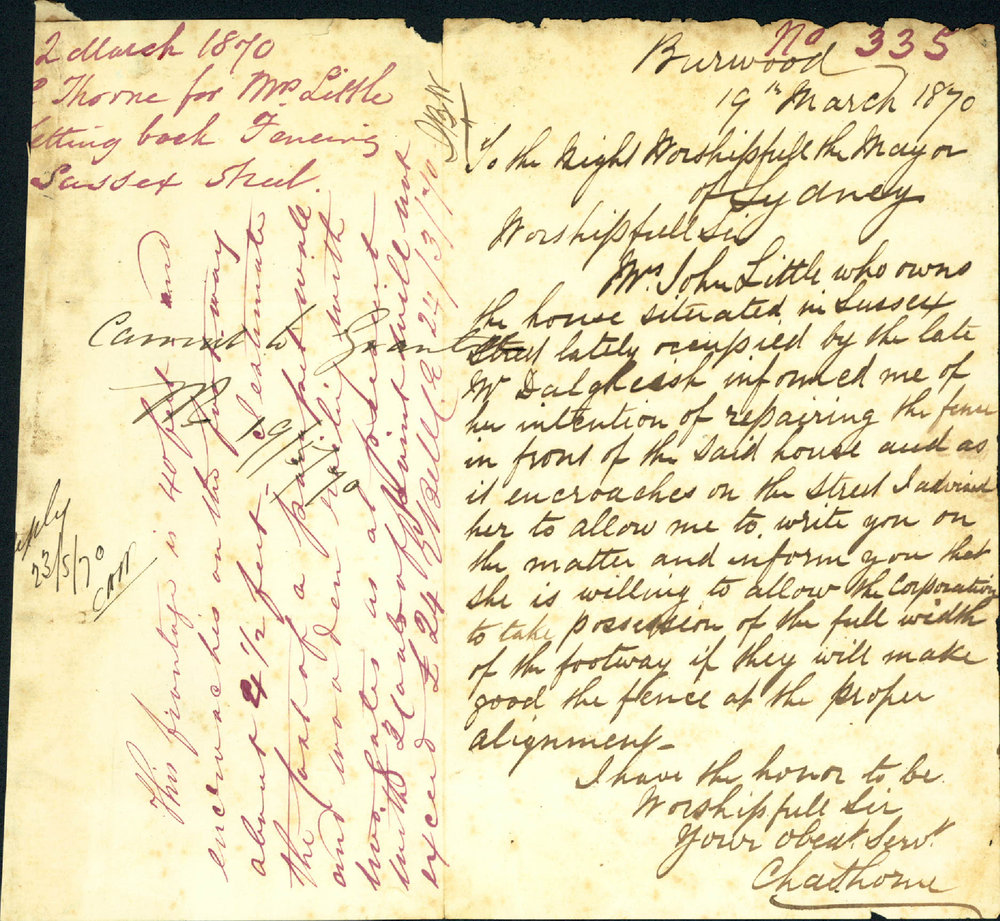 2 March 1870
Thorne for Mrs Little
etting back Fencing
Sussex Street.
This frontage is 40 feet and
encroaches on the footway
about 4 1/2 feet. I estimate
the cost of a parapet wall
and wooden railing with
two gates as at present
in the of appointment will not
exceed £24 24/3/70
Cannot
19/5/70
reply
23/5/70
No 335
Burwood
19th March 1870
To the Right Worshipfull the Mayor
of Sydney
Worshipfull Sir
Mrs John Little who owns
the house situated in Sussex
Street lately occupied by the late
Mr Dalgleish informed me of
her intention of repairing the fence
in front of the said house and as
it encroaches on the street I advised
her to allow me to write you on
the matter and inform you that
she is willing to allow the Corporation
to take possession of the full width
of the footway if they will make
good the fence at the proper
alignment_
I have the honor to be
Worshipfull Sir
Your obedt. Servt.
Chas Thorne